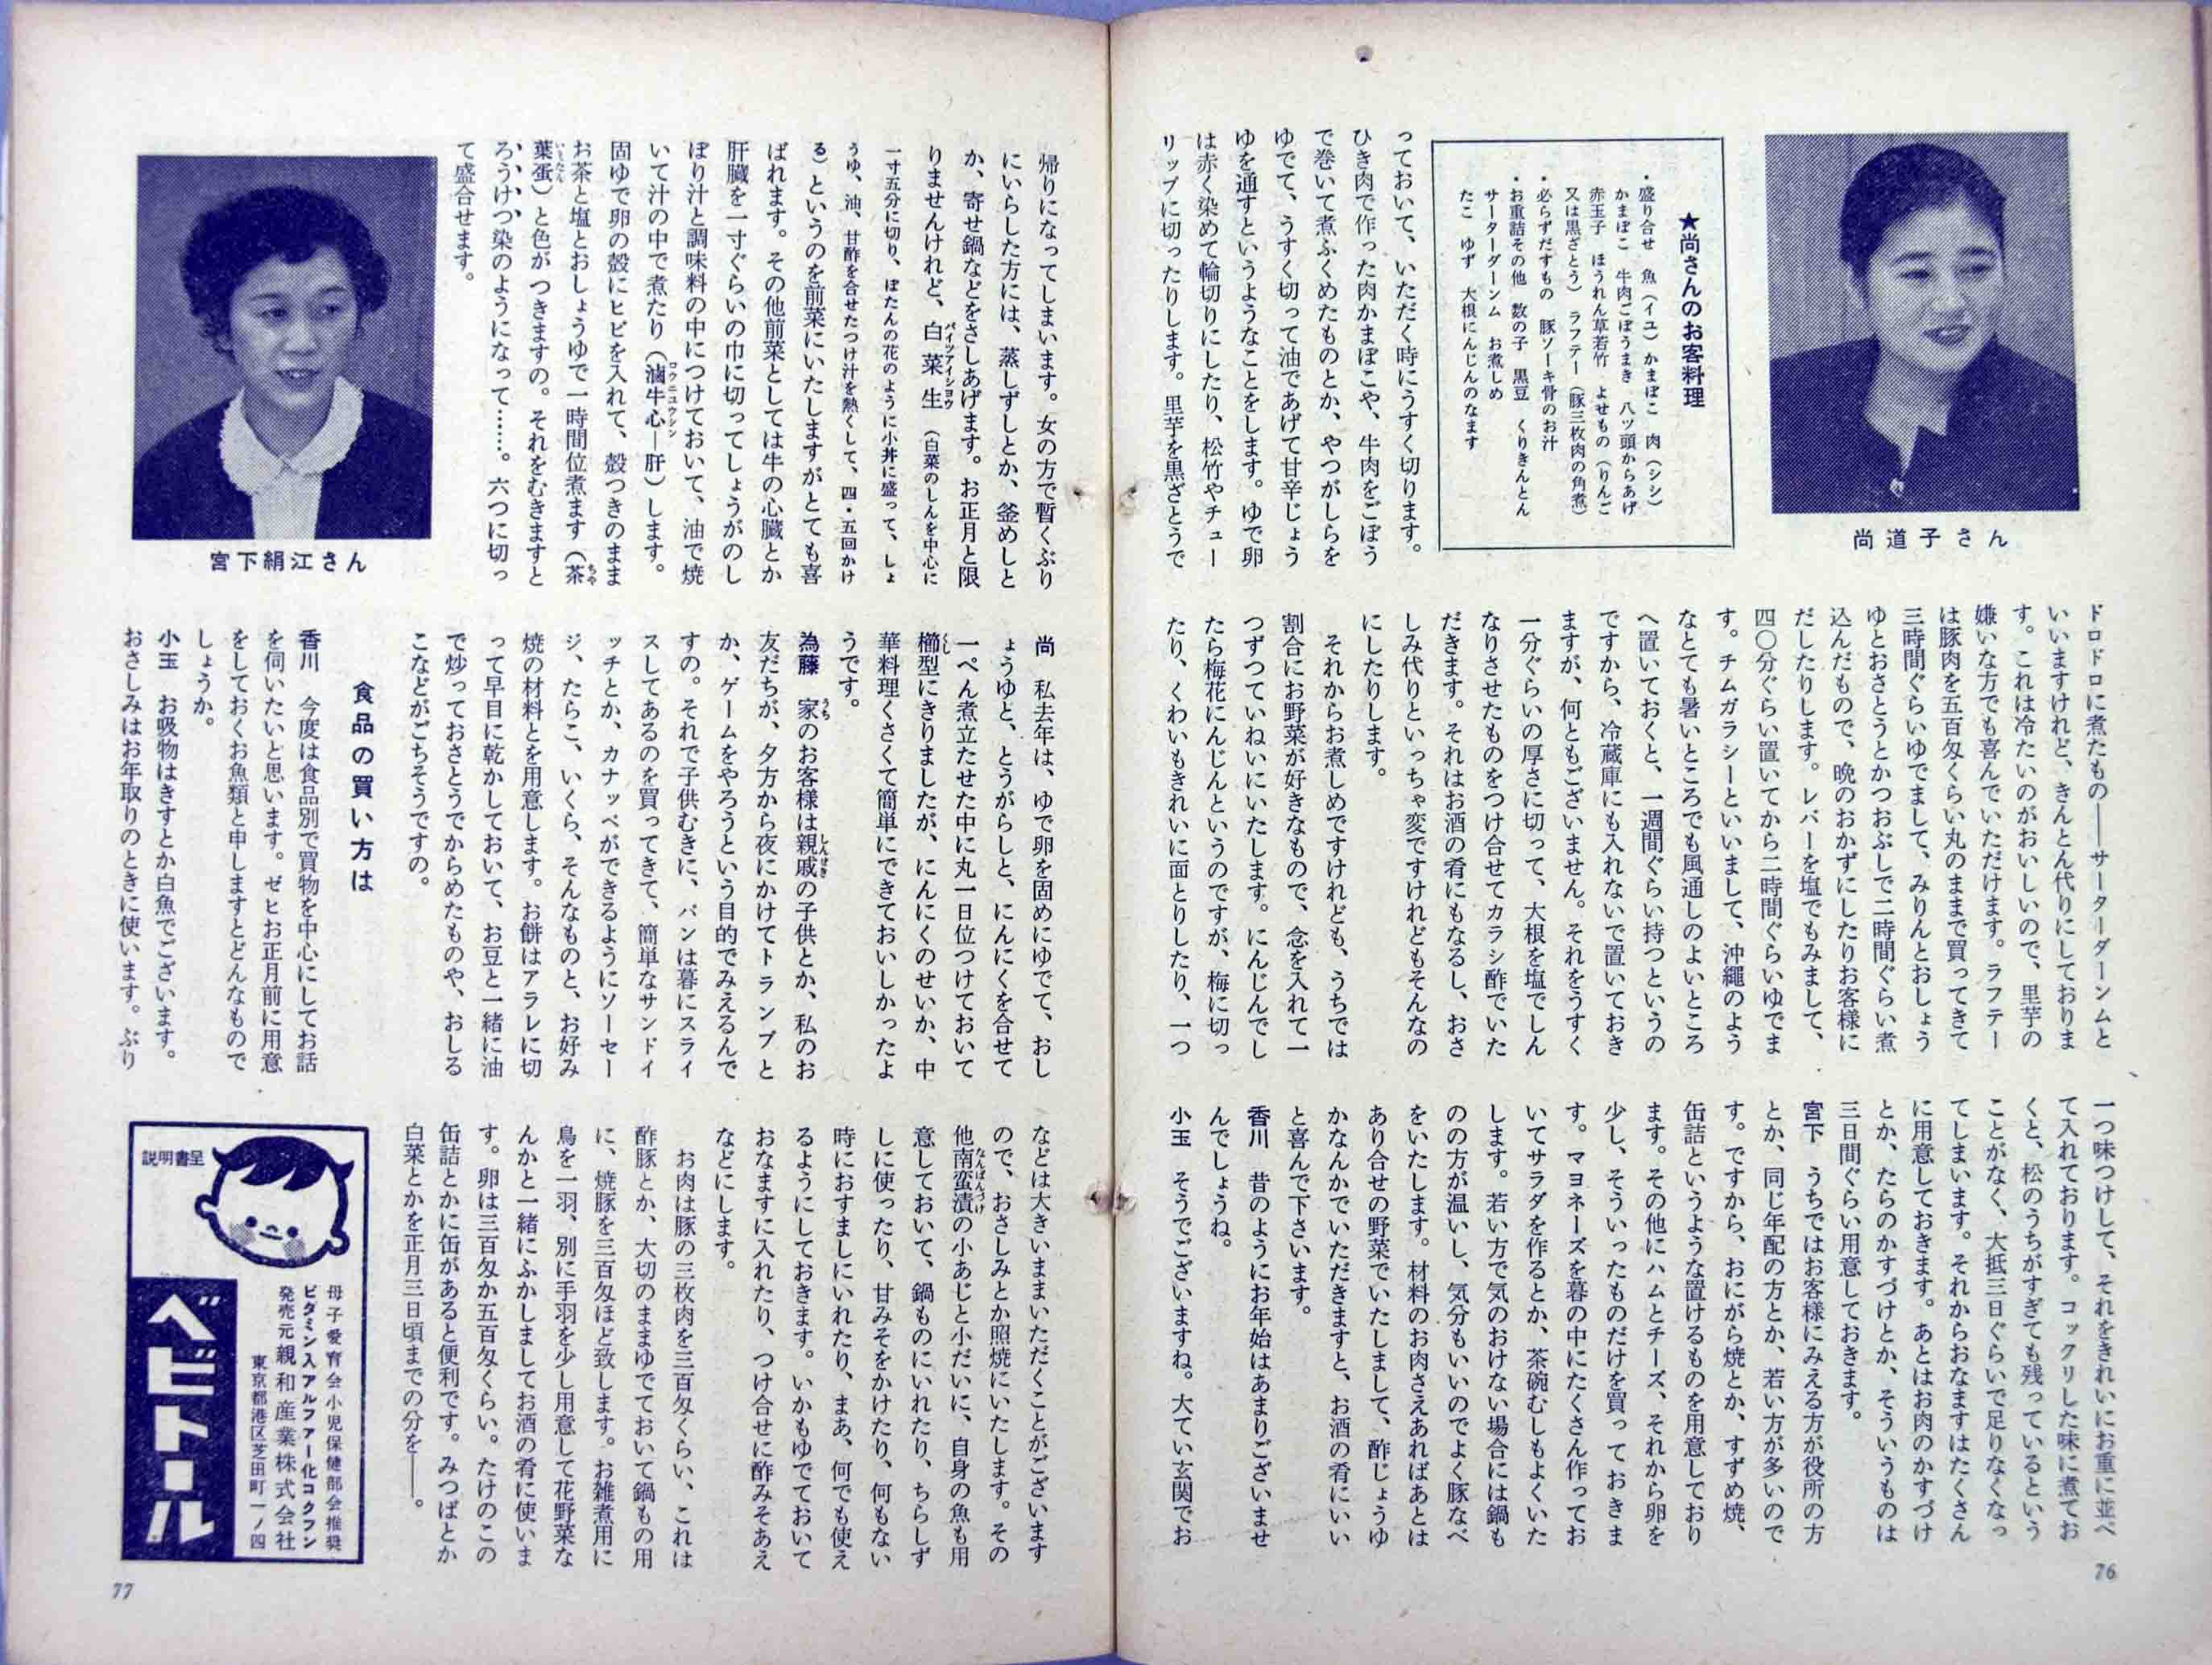 尚道子さん
★尚さんのお客料理
・盛り合せ　魚（イユ）かまぼこ　肉（シシ）
かまぼこ　牛肉ごぼうまき　八ツ頭からあげ
赤玉子　ほうれん草若竹　よせもの（りんご
又は黒ざとう）ラフテー（豚三枚肉の角煮）
・必らずだすもの　豚ソーキ骨のお汁
・お重詰その他　数の子　黒豆　くりきんとん
サーターダーンム　お煮しめ
たこ　ゆず　大根にんじんのなます
っておいて、いただく時にうすく切ります。
ひき肉で作った肉かまぼこや、牛肉をごぼう
で巻いて煮ふくめたものとか、やつがしらを
ゆでて、うすく切って油であげて甘辛じょう
ゆを通すというようなことをします。ゆで卵
は赤く染めて輪切りにしたり、松竹やチュー
リップに切ったりします。里芋を黒ざとうで
ドロドロに煮たもの――サーターダーンムと
いいますけれど、きんとん代りにしておりま
す。これは冷たいのがおいしいので、里芋の
嫌いな方でも喜んでいただけます。ラフテー
は豚肉を五百匁くらい丸のままで買ってきて
三時間ぐらいゆでまして、みりんとおしょう
ゆとおさとうとかつおぶしで二時間ぐらい煮
込んだもので、晩のおかずにしたりお客様に
だしたりします。レバーを塩でもみまして、
四〇分ぐらい置いてから二時間ぐらいゆでま
す。チムガラシーといいまして、沖縄のよう
なとても暑いところでも風通しのよいところ
へ置いておくと、一週間ぐらい持つというの
ですから、冷蔵庫にも入れないで置いておき
ますが、何ともございません。それをうすく
一分ぐらいの厚さに切って、大根を塩でしん
なりさせたものをつけ合せてカラシ酢でいた
だきます。それはお酒の肴にもなるし、おさ
しみ代りといっちゃ変ですけれどもそんなの
にしたりします。
それからお煮しめですけれども、うちでは
割合にお野菜が好きなもので、念を入れて一
つずつていねいにいたします。にんじんでし
たら梅花にんじんというのですが、梅に切っ
たり、くわいもきれいに面とりしたり、一つ
一つ味つけして、それをきれいにお重に並べ
て入れております。コックリした味に煮てお
くと、松のうちがすぎても残っているという
ことがなく、大抵三日ぐらいで足りなくなっ
てしまいます。それからおなますはたくさん
に用意しておきます。あとはお肉のかすづけ
とか、たらのかすづけとか、そういうものは
三日間ぐらい用意しておきます。
宮下　うちではお客様にみえる方が役所の方
とか、同じ年配の方とか、若い方が多いので
す。ですから、おにがら焼とか、すずめ焼、
缶詰というような置けるものを用意しており
ます。その他にハムとチーズ、それから卵を
少し、そういったものだけを買っておきま
す。マヨネーズを暮の中にたくさん作ってお
いてサラダを作るとか、茶碗むしもよくいた
します。若い方で気のおけない場合には鍋も
のの方が温いし、気分もいいのでよく豚なべ
をいたします。材料のお肉さえあればあとは
あり合せの野菜でいたしまして、酢じょうゆ
かなんかでいただきますと、お酒の肴にいい
と喜んで下さいます。
香川　昔のようにお年始はあまりございませ
んでしょうね。
小玉　そうでございますね。大てい玄関でお
76
帰りになってしまいます。女の方で暫くぶり
にいらした方には、蒸しずしとか、釜めしと
か、寄せ鍋などをさしあげます。お正月と限
りませんけれど、白菜生（パイツアイシヨウ）（白菜のしんを中心に
一寸五分に切り、ぼたんの花のように小丼に盛って、しょ
うゆ、油、甘酢を合せたつけ汁を熱くして、四・五回かけ
る）というのを前菜にいたしますがとても喜
ばれます。その他前菜としては牛の心臓とか
肝臓を一寸ぐらいの巾に切ってしょうがのし
ぼり汁と調味料の中につけておいて、油で焼
いて汁の中で煮たり（滷牛心―肝）（ロウニユウシン）します。
固ゆで卵の殻にヒビを入れて、殻つきのまま
お茶と塩とおしょうゆで一時間位煮ます（茶
葉蛋）と色がつきますの。それをむきますと
ろうけつ染のようになって……。六つに切っ
て盛合せます。
宮下絹江さん
尚　私去年は、ゆで卵を固めにゆでて、おし
ょうゆと、とうがらしと、にんにくを合せて
一ぺん煮立たせた中に丸一日位つけておいて
櫛型（くし）にきりましたが、にんにくのせいか、中
華料理くさくて簡単にできておいしかったよ
うです。
為藤　家（うち）のお客様は親戚（しんせき）の子供とか、私のお
友だちが、夕方から夜にかけてトランプと
か、ゲームをやろうという目的でみえるんで
すの。それで子供むきに、パンは暮にスライ
スしてあるのを買ってきて、簡単なサンドイ
ッチとか、カナッペができるようにソーセー
ジ、たらこ、いくら、そんなものと、お好み
焼の材料とを用意します。お餅はアラレに切
って早目に乾かしておいて、お豆と一緒に油
で炒っておさとうでからめたものや、おしる
こなどがごちそうですの。
食品の買い方は
香川　今度は食品別で買物を中心にしてお話
を伺いたいと思います。ゼヒお正月前に用意
をしておくお魚類と申しますとどんなもので
しょうか。
小玉　お吸物はきすとか白魚でございます。
おさしみはお年取りのときに使います。ぶり
などは大きいままいただくことがございます
ので、おさしみとか照焼にいたします。その
他南蛮漬（なんばんづけ）の小あじと小だいに、白身の魚も用
意しておいて、鍋ものにいれたり、ちらしず
しに使ったり、甘みそをかけたり、何もない
時におすましにいれたり、まあ、何でも使え
るようにしておきます。いかもゆでておいて
おなますに入れたり、つけ合せに酢みそあえ
などにします。
お肉は豚の三枚肉を三百匁くらい、これは
酢豚とか、大切のままゆでておいて鍋もの用
に、焼豚を三百匁ほど致します。お雑煮用に
鳥を一羽、別に手羽を少し用意して花野菜な
んかと一緒にふかしましてお酒の肴に使いま
す。卵は三百匁か五百匁くらい。たけのこの
缶詰とかに缶があると便利です。みつばとか
白菜とかを正月三日頃までの分を――。
説明書呈
母子愛育会小児保健部会推奨
ビタミン入アルファー化コクフン
発売元親和産業株式会社
東京都港区芝田町一ノ四
ベビトール
77